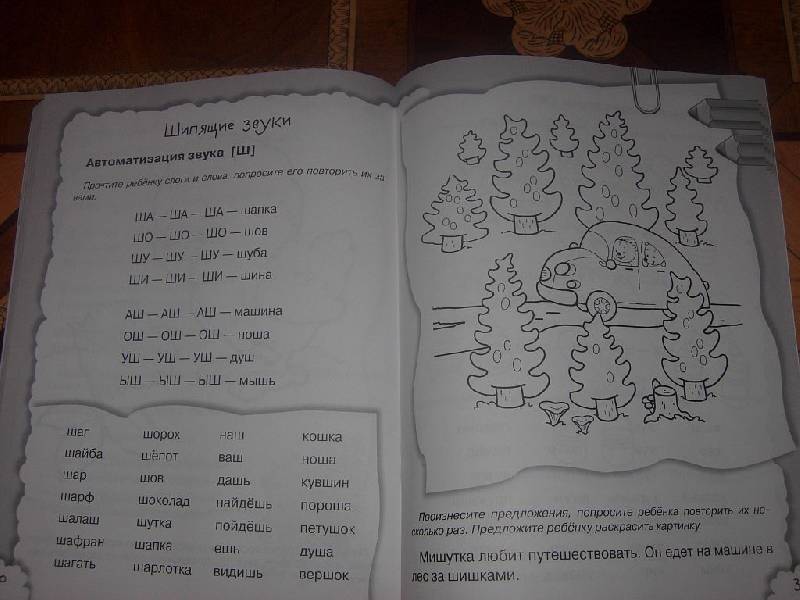 Шипящие звуки
Автоматизация звука [Ш]
Прочтите ребёнку слоги и слова, попросите его повторить их за
вами.
ША — ША — ША — шапка
ШО — ШО — ШО — шов
ШУ — ШУ — ШУ — шуба
ШИ — ШИ — ШИ — шина
АШ — АШ — АШ — машина
ОШ — ОШ — ОШ — ноша
УШ — УШ — УШ — душ
ЫШ — ЫШ — ЫШ — мышь
шаг шорох наш кошка
шайба шёпот ваш ноша
шар шов дашь кувшин
шарф шоколад найдёшь пороша
шалаш шутка пойдёшь петушок
шафран шапка ешь душа
шагать шарлотка видишь вершок
Произнесите предложения, попросите ребёнка повторить их не-
сколько раз. Предложите ребёнку раскрасить картинку.
Мишутка любит путешествовать. Он едет на машине в
лес за шишками.